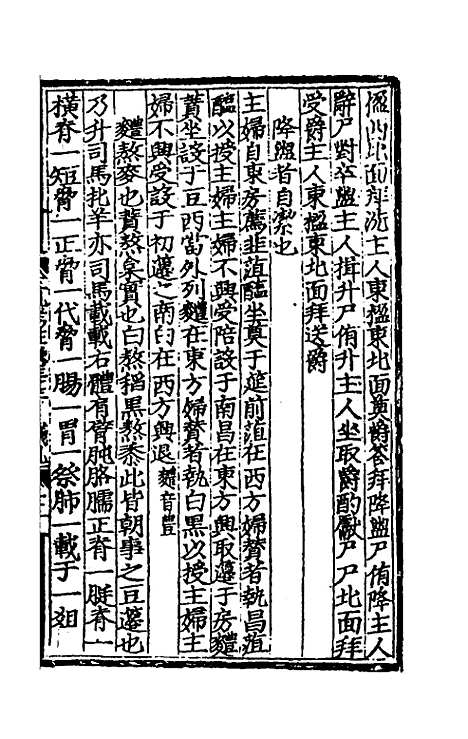 楹西北面拜洗主人東楹東北面奠爵荅拜降盥尸侑降主人
辭尸對卒盥主人揖升尸侑升主人坐取爵酌獻尸尸北面拜
受爵主人東楹東北面拜送爵
降盥者自絜也
主婦自東房薦韭菹醢坐奠于筵前菹在西方婦贊者執昌菹
醢以授主婦主婦不興受陪設于南昌在東方興取籩于房麷
蕡坐設于豆西當外列麷在東方婦贊者執白黑以授主婦主
婦不興受設于初籩之南白在西方興退 麷音豐
麷熬麥也蕡熬枲實也白熬稻黑熬黍此皆朝事之豆籩也
乃升司馬朼羊亦司馬載載右體肩臂肫胳臑正脊一脡脊一
橫脊一短脅一正脅一代脅一腸一胃一祭肺一載于一俎